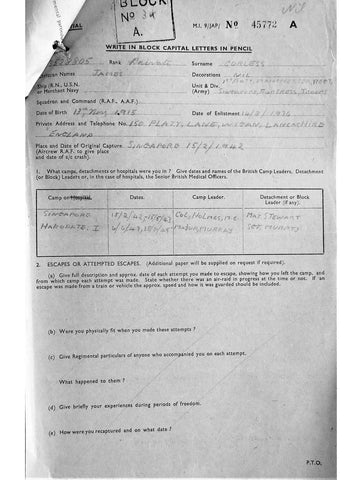 BLOCK
Nº 34
A.
M.I. 9/JAP/ Nº 45772
Nil
WRITE IN BLOCK CAPITAL LETTERS IN PENCIL
Rank Private Surname CORLESS
Names JAMES Decorations NIL
Ship (R.N., U.S.N. or Merchant Navy Unit & Div. (Army) SINGAPORE, FORTRESS, TROOPS
Squadron and Command (R.A.F., A.A.F.)
Date of Birth MAY 1915 Date of Enlistment
Private Address and Telephone No. 150, PLATT, LANE, WIGAN, LANCASHIRE
ENGLAND
Place and Date of Original Capture. SINGAPORE 15/2/1942
(Aircrew R.A.F. to give place
and date of a/c crash).
1. What camps, detachments or hospitals were you in ? Give dates and names of the British Camp Leaders, Detachment
(or Block) Leaders or, in the case of hospitals, the Senior British Medical Officers.
Camp or Hospital. Dates. Camp Leader. Detachment or Block Leader (if any).
SINGAPORE COL, HOLMES, M.C. STEWART
HAKODATE. I MAJOR, MURRAY SGT,
2. ESCAPES OR ATTEMPTED ESCAPES. (Additional paper will be supplied on request if required).
(a) Give full description and approx. date of each attempt you made to escape, showing how you left the camp, and
from which camp each attempt was made. State whether there was an air-raid in progress at the time or not. If an
escape was made from a train or vehicle the approx. speed and how it was guarded should be included.
(b) Were you physically fit when you made these attempts ?
(c) Give Regimental particulars of anyone who accompanied you on each attempt.
What happened to them ?
(d) Give briefly your experiences during periods of freedom.
(e) How were you recaptured and on what date ?
P.T.O.